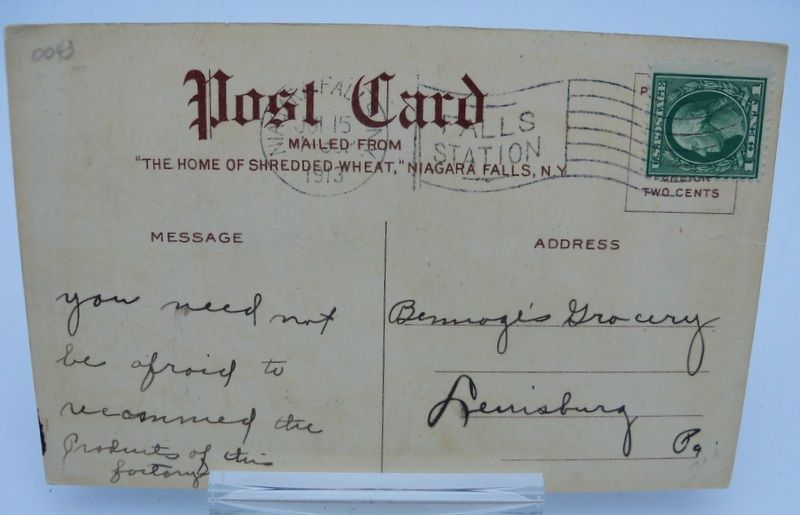 0043
Post Card
MAILED FROM
"THE HOME OF SHREDDED WHEAT," NIAGARA FALLS, N.Y.
FALLS
STATION
15
1913
U.S. POSTAGE
1 CENT 1
TWO CENTS
MESSAGE
ADDRESS
you need not
be afraid to
recommed the
Products of this
factory
Grocery
Lewisburg
Pa